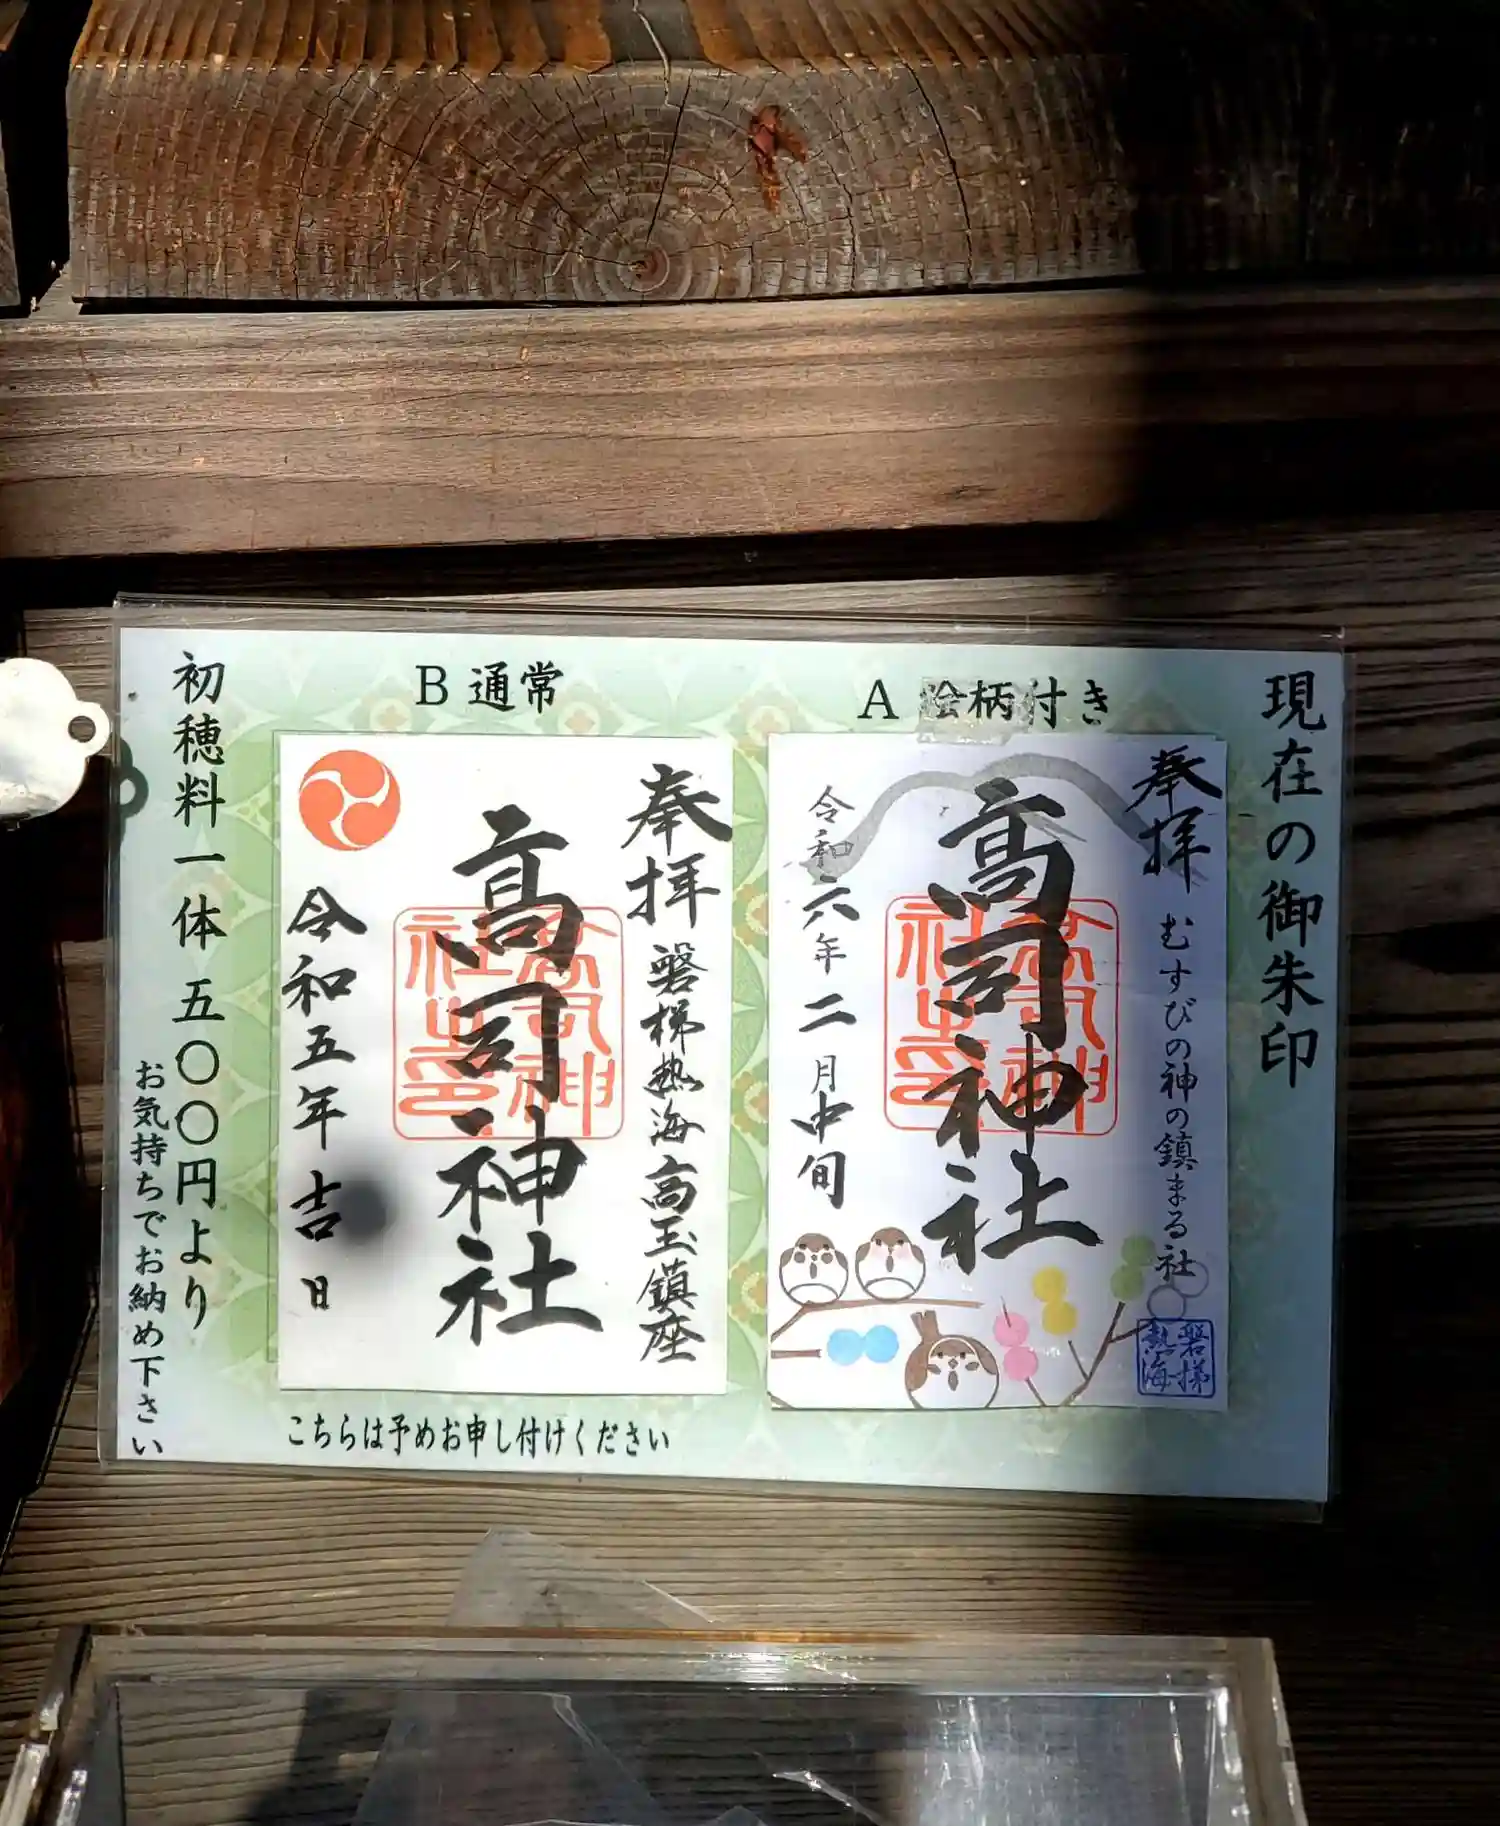 現在の御朱印
A 絵柄付き
奉拝
むすびの神の鎮まる社
磐梯
熱海
高司神社
令和六年二月中旬
B 通常
奉拝
磐梯熱海高玉鎮座
高司神社
令和五年吉日
こちらは予めお申し付けください
初穂料一体五〇〇円より
お気持ちでお納め下さい